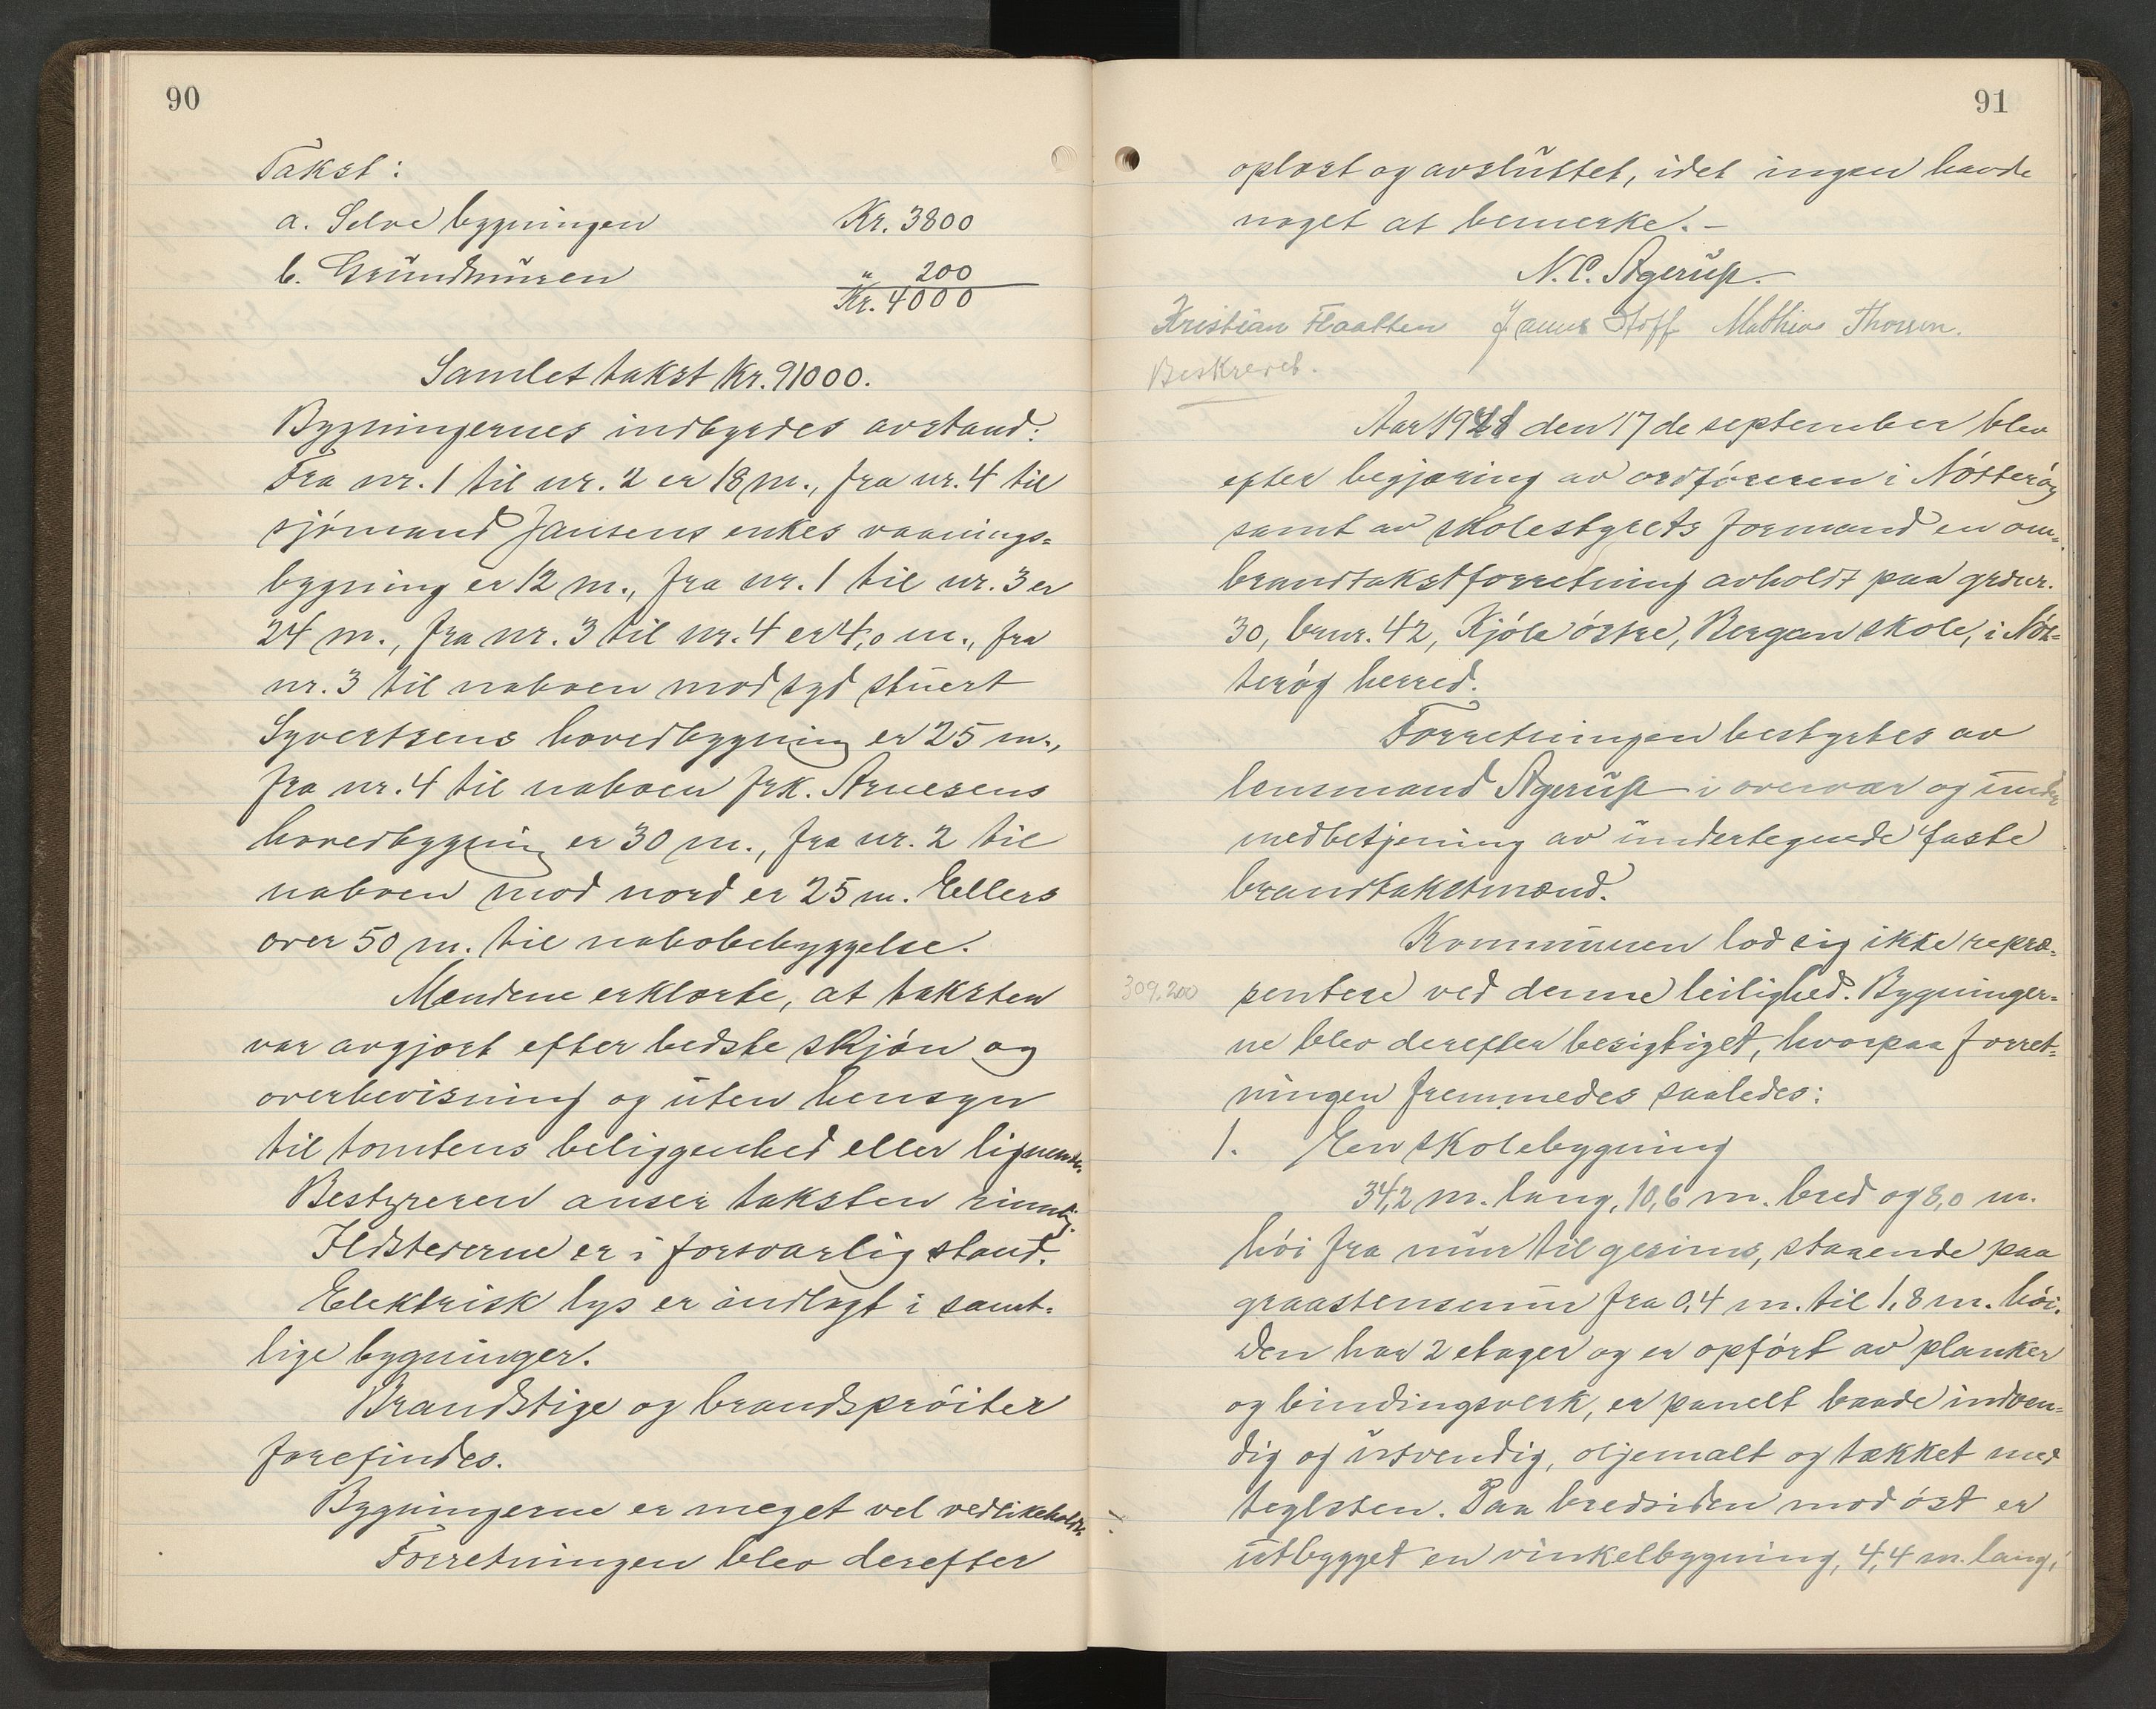 90
Takst:
a. Selve bygningen Kr. 3800
b. Grundmuren " 200
Kr. 4000
Samlet takst Kr. 91000.
Bygningernes indbyrdes avstand:
Fra nr. 1 til nr. 2 er 18 m., fra nr. 4 til
sjömand Jansens enkes vaanings-
bygning er 12 m., fra nr. 1 til nr. 3 er
24 m., fra nr. 3 til nr. 4 er 4,0 m., fra
nr. 3 til naboen mod syd stuert
Syvertsens hovedbygning er 25 m.,
fra nr. 4 til naboen frk. Arnesens
hovedbygning er 30 m., fra nr. 2 til
naboen mod nord er 25 m. Ellers
over 50 m. til nabobebyggelse.
Mændene erklærte, at taksten
var avgjort efter bedste skjön og
overbevisning og uten hensyn
til tomtens beliggenhed eller lignende.
Bestyreren anser taksten rimelig.
Ildstederne er i forsvarlig stand.
Elektrisk lys er indlagt i samt-
lige bygninger.
Brandstige og brandspröiter
forefindes.
Bygningerne er meget vel vedlikeholdt.
Forretningen blev derefter
91
oplæst og avsluttet, idet ingen havde
noget at bemerke. -
N. C. Agerup.
Kristian Haatten Mathias Thorsen.
Beskrevet.
Aar 1921 den 17de september blev
efter begjæring av ordföreren i Nötteröy
samt av skolestyrets formand en om-
brandtakstforretning avholdt paa grdnr.
30, brnr. 42, Kjöle östre, Bergan skole, i Nöt-
teröy herred.
Forretningen bestyrtes av
lensmand Agerup i overvær og under
medbetjening av undertegnede faste
brandtakstmænd.
Kommunen lod sig ikke repræ-
309.200
sentere ved denne leilighed. Bygninger-
ne blev derefter besigtiget, hvorpaa forret-
ningen fremmedes saaledes:
1. En skolebygning
34,2 m. lang, 10,6 m. bred og 8,0 m.
höi fra mur til gesims, staaende paa
graastensmur fra 0,4 m. til 1,8 m. höi.
Den har 2 etager og er opfört av planker
og bindingsverk, er panelt baade indven-
dig og utvendig, oljemalt og tækket med
teglsten. Paa bredsiden mod öst er
utbygget en vinkelbygning, 4,4 m. lang,